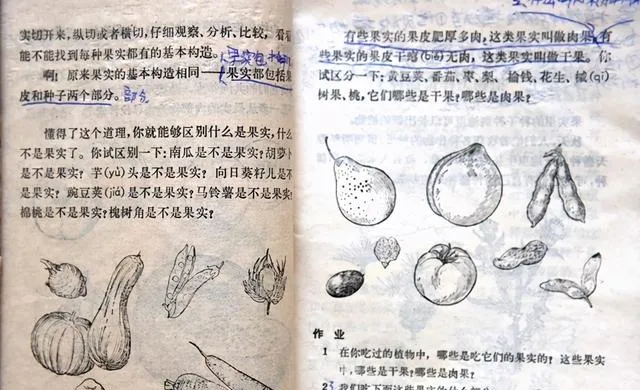 实切开来，纵切或者横切，仔细观察、分析、比较，看看
能不能找到每种果实都有的基本构造。
啊！原来果实的基本构造相同——果实都包括果
皮和种子两个部分。
懂得了这个道理，你就能够区别什么是果实，什么
不是果实了。你试区别一下：南瓜是不是果实？胡萝卜
是不是果实？芋(yù)头是不是果实？向日葵籽儿是不
是果实？豌豆荚(jiá)是不是果实？马铃薯是不是果实？
棉桃是不是果实？槐树角是不是果实？
有些果实的果皮肥厚多肉，这类果实叫做肉果。有
些果实的果皮干瘪(biě)无肉，这类果实叫做干果。你
试区分一下：黄豆荚、番茄、枣、梨、榆钱、花生、槭(qì)
树果、桃，它们哪些是干果？哪些是肉果？
作业
1 在你吃过的植物中，哪些是吃它们的果实的？这些果实
中，哪些是干果？哪些是肉果？
2